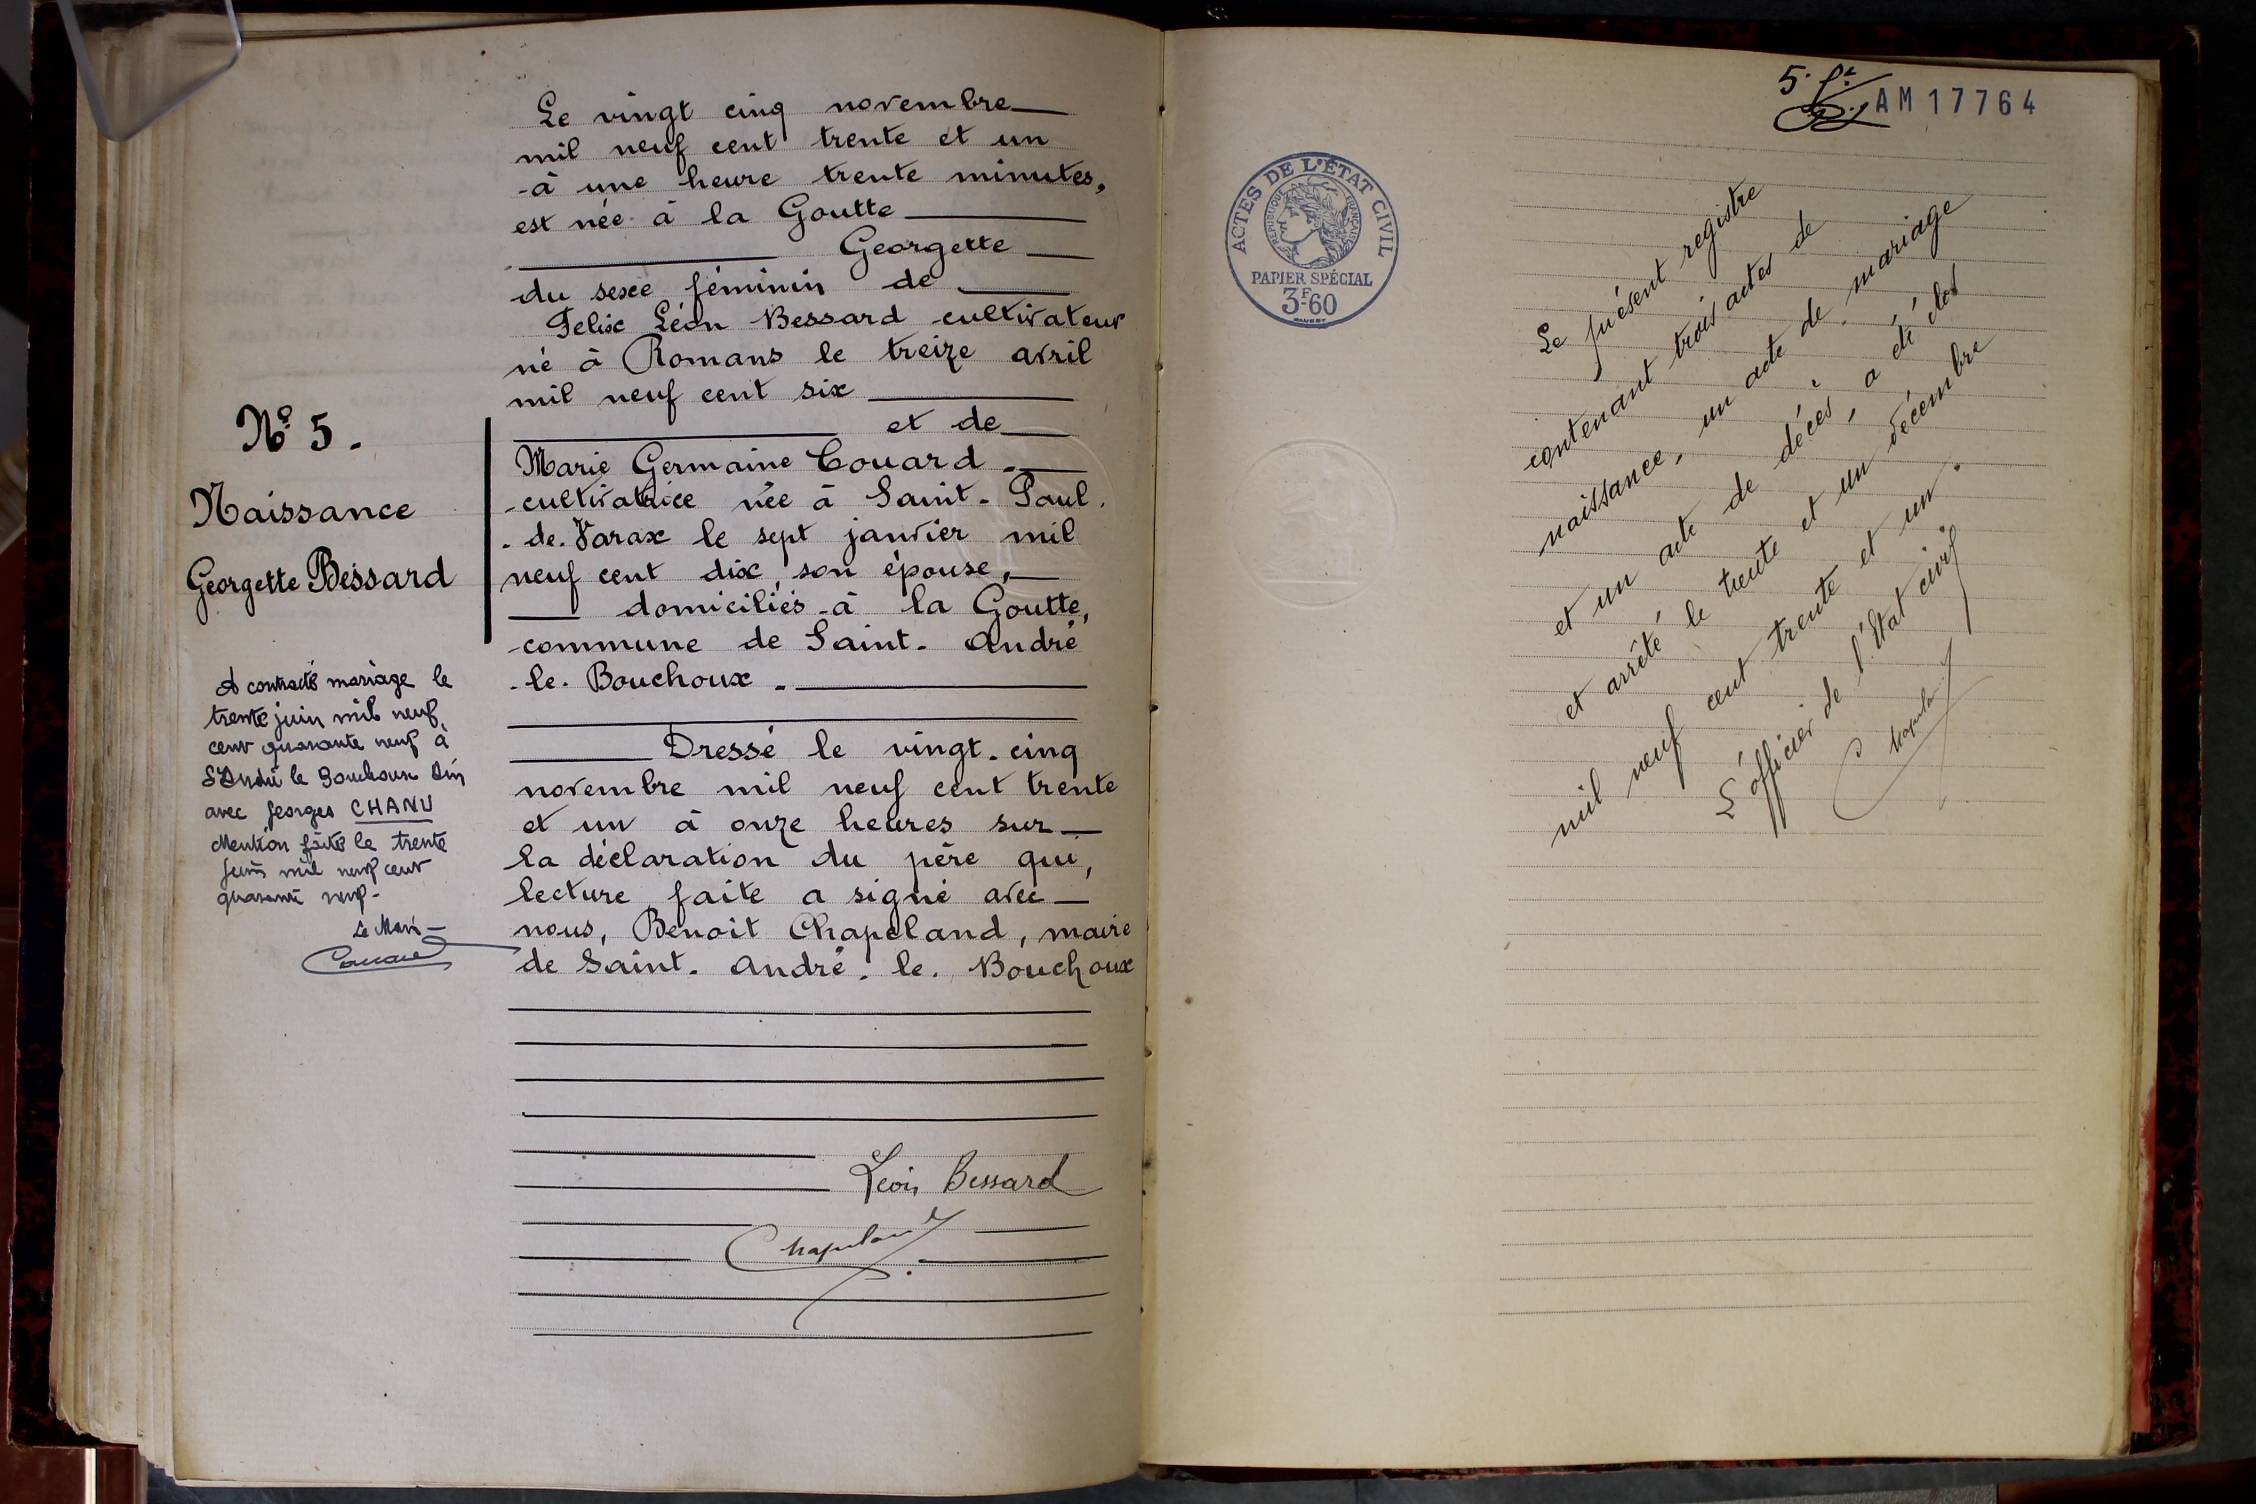 Nº 5.
Naissance
Georgette Bessard
A contracté mariage le
trente juin mil neuf
cent quarante neuf à
St André le Bouchoux Ain
avec Georges CHANU
Mention faite le trente
juin mil neuf cent
quarante neuf-
Le Maire
Le vingt cinq novembre
mil neuf cent trente et un
à une heure trente minutes,
est née à la Goutte
Georgette
du sexe féminin de
Felix Léon Bessard cultivateur
né à Romans le treize avril
mil neuf cent six
et de
Marie Germaine Couard
cultivatrice née à Saint-Paul
de-Varax le sept janvier mil
neuf cent dix, son épouse,
domiciliés à la Goutte,
commune de Saint-André
-le-Bouchoux.
Dressé le vingt-cinq
novembre mil neuf cent trente
et un à onze heures sur
la déclaration du père qui,
lecture faite a signé avec
nous, Benoit Chapeland, maire
de Saint-André-le-Bouchoux
Léon Bessard
Chapeland
5.
AM 17764
ACTES DE L'ÉTAT CIVIL
REPUBLIQUE FRANÇAISE
PAPIER SPÉCIAL
3F-60
Le présent registre
contenant trois actes de
naissance, un acte de mariage
et un acte de décès, a été clos
et arrêté le trente et un décembre
mil neuf cent trente et un.
L'officier de l'état civil
Chapeland